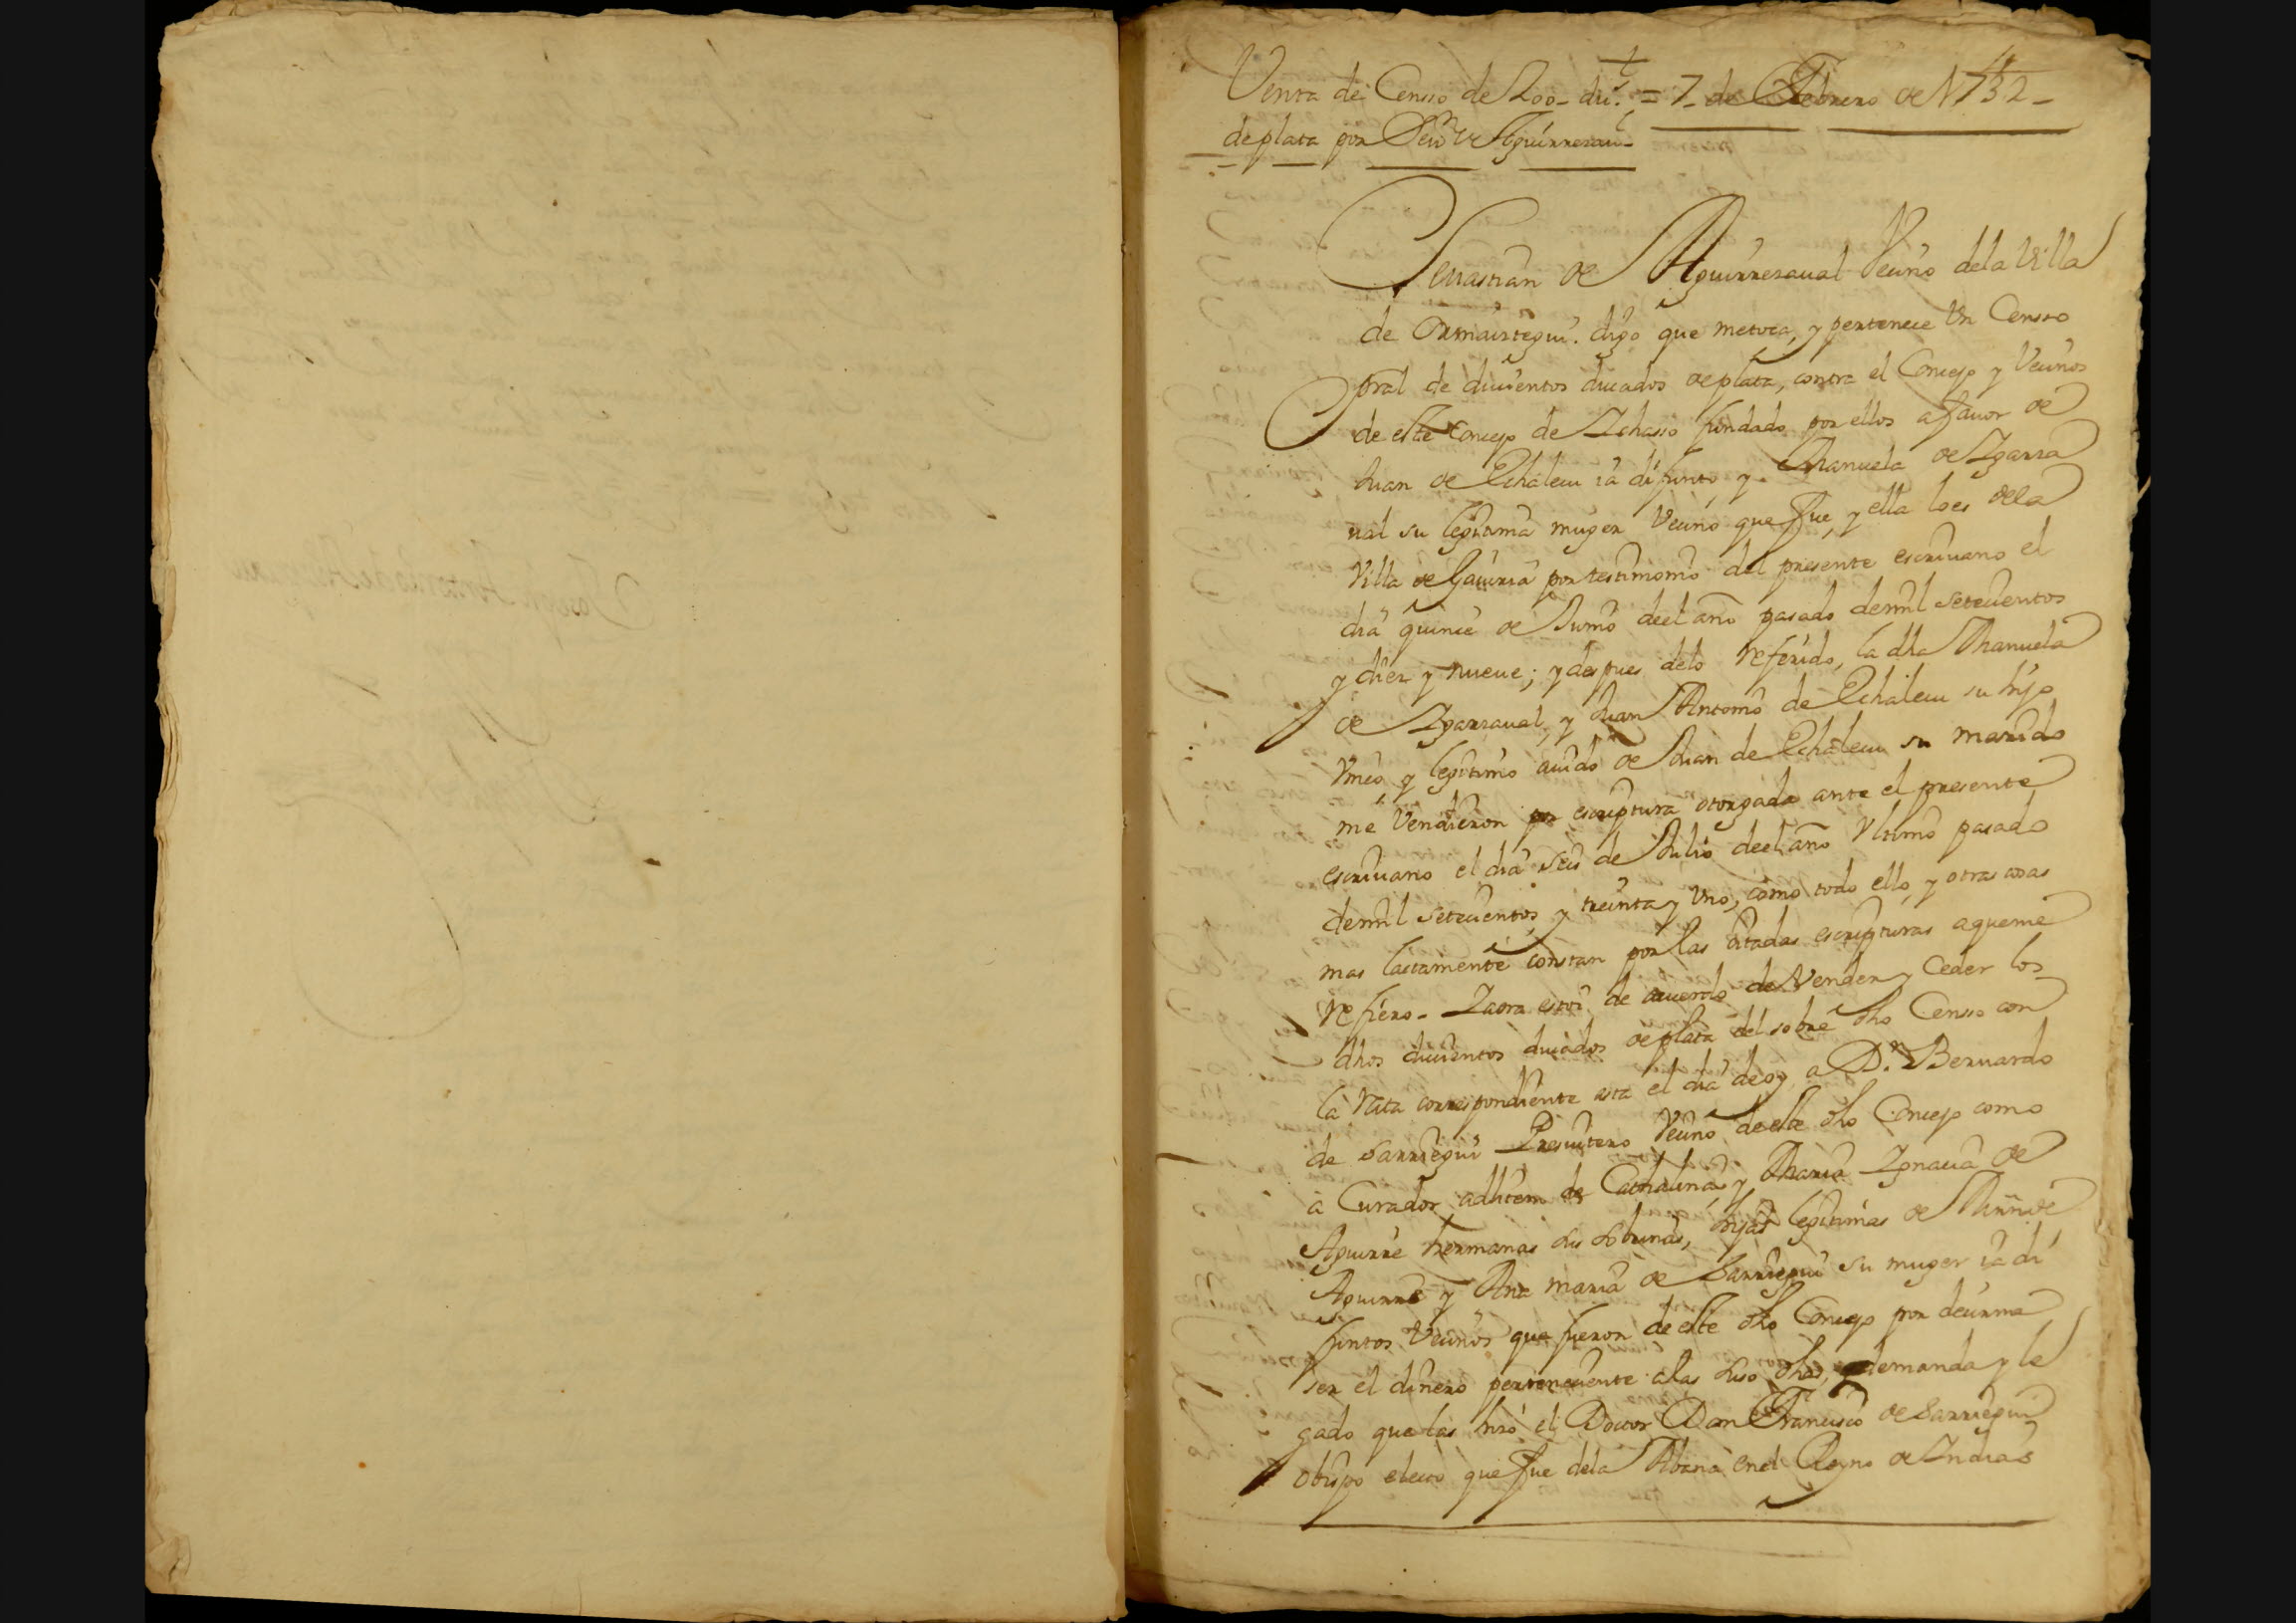 Venta de Censso de 200 du.s = 7 de Febrero de 1732
de plata por Seu.n de Aguirrezaual
Seuastian de Aguirrezaual Vecino dela Villa
de Ormaiztegui. digo que metoca, y pertenece Vn Censso
pral de ducientos ducados de plata, contra el Concejo y Vecinos
de este Concejo de Ichasso fundado por ellos afauor de
Juan de Echalecu ia difunto, y Manuela de Ygarza
ual su legitima muger Vecino que fue, y ella lo es dela
Villa de Gauiria por testimonio del presente escriuano el
dia quince de Junio deel año pasado demil setecientos
y diez y nueue; y despues delo referido, la dha Manuela
de Ygarzaual, y Juan Antonio de Echalecu su hijo
Vnico y legitimo auido de Juan de Echalecu su marido
me Vendieron por escriptura otorgada ante el presente
escriuano el dia seis de Julio deel año Vltimo pasado
demil setecientos y treinta y Vno, como todo ello, y otras cosas
mas lactamente constan por las citadas escripturas aqueme
refiero - Yaora estoi de acuerdo de Vender y Ceder los
dhos ducientos ducados de plata del sobre dho Censso con
la rata correspondiente asta el dia deoy a D.n Bernardo
de Sarriegui Presuitero Vecino deeste dho Concejo como
a Curador adlitem de Cathalina y Maria Ygnacia de
Aguirre hermanas sus sobrinas, hijas legitimas de de
Aguirre y Ana maria de Sarriegui su muger ia di
funtos Vecinos que fueron de este dho Concejo por decirme
ser el dinero perteneciente alas suso dhas, demanda y le
gado que las hizo el Doctor Don Francisco de Sarriegui
obispo electo que fue dela Abana enel Reyno de Indias